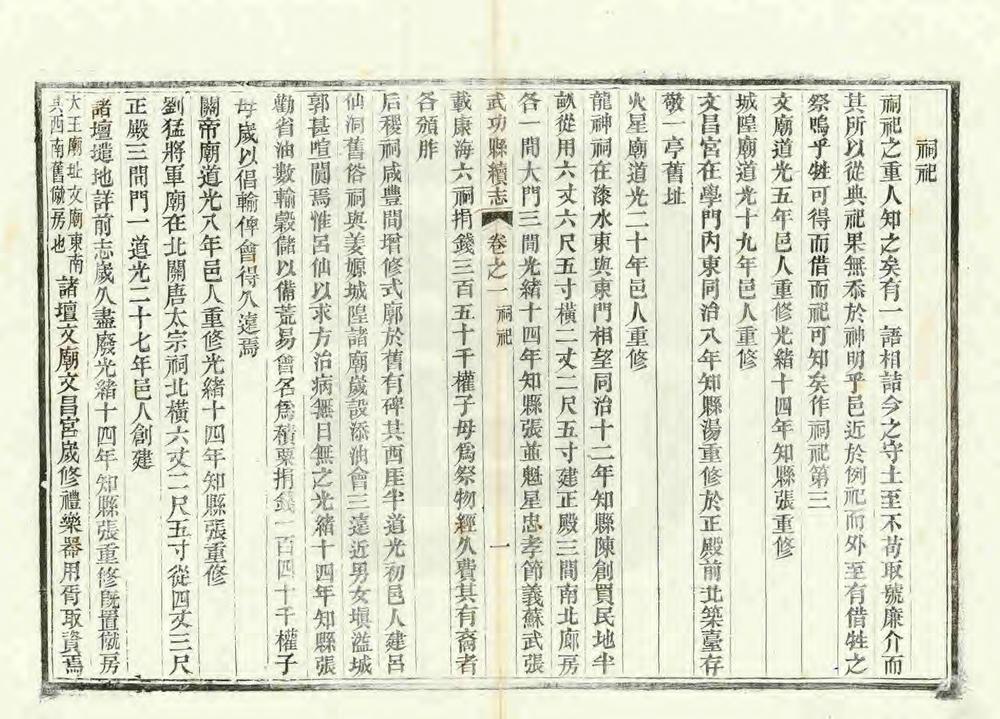 祠祀
祠祀之重人知之矣有一語相詰今之守土至不苟取號廉介而
其所以從典祀果無忝於神明乎邑近於例祀而外至有借牲之
祭嗚乎牲可得而借而祀可知矣作祠祀第三
文廟道光五年邑人重修光緒十四年知縣張重修
城隍廟道光十九年邑人重修
文昌宮在學門內東同治八年知縣湯重修於正殿前北築臺存
敬一亭舊址
火星廟道光二十年邑人重修
龍神祠在漆水東與東門相望同治十二年知縣陳創買民地半
畝從用六丈六尺五寸橫二丈二尺五寸建正殿三間南北廊房
各一間大門三間光緒十四年知縣張並魁星忠孝節義蘇武張
載康海六祠捐錢三百五十千權子母爲祭物經久費其有裔者
各頒胙
武功縣續志 卷之一 祠祀 一
后稷祠咸豐間增修式廓於舊有碑其西厓半道光初邑人建呂
仙洞舊俗祠與姜嫄城隍諸廟歲設添油會三遠近男女塡溢城
郭甚喧闐焉惟呂仙以求方治病無日無之光緒十四年知縣張
勸省油數輸穀儲以備荒易會名爲積粟捐錢一百四十千權子
母歲以倡輸俾會得久遠焉
關帝廟道光八年邑人重修光緒十四年知縣張重修
劉猛將軍廟在北關唐太宗祠北橫六丈二尺五寸從四丈三尺
正殿三間門一道光二十七年邑人創建
諸壇壝地詳前志歲久盡廢光緒十四年知縣張重修旣置僦房
大王廟址文廟東南
其西南舊僦房也
諸壇文廟文昌宮歲修禮樂器用胥取資焉